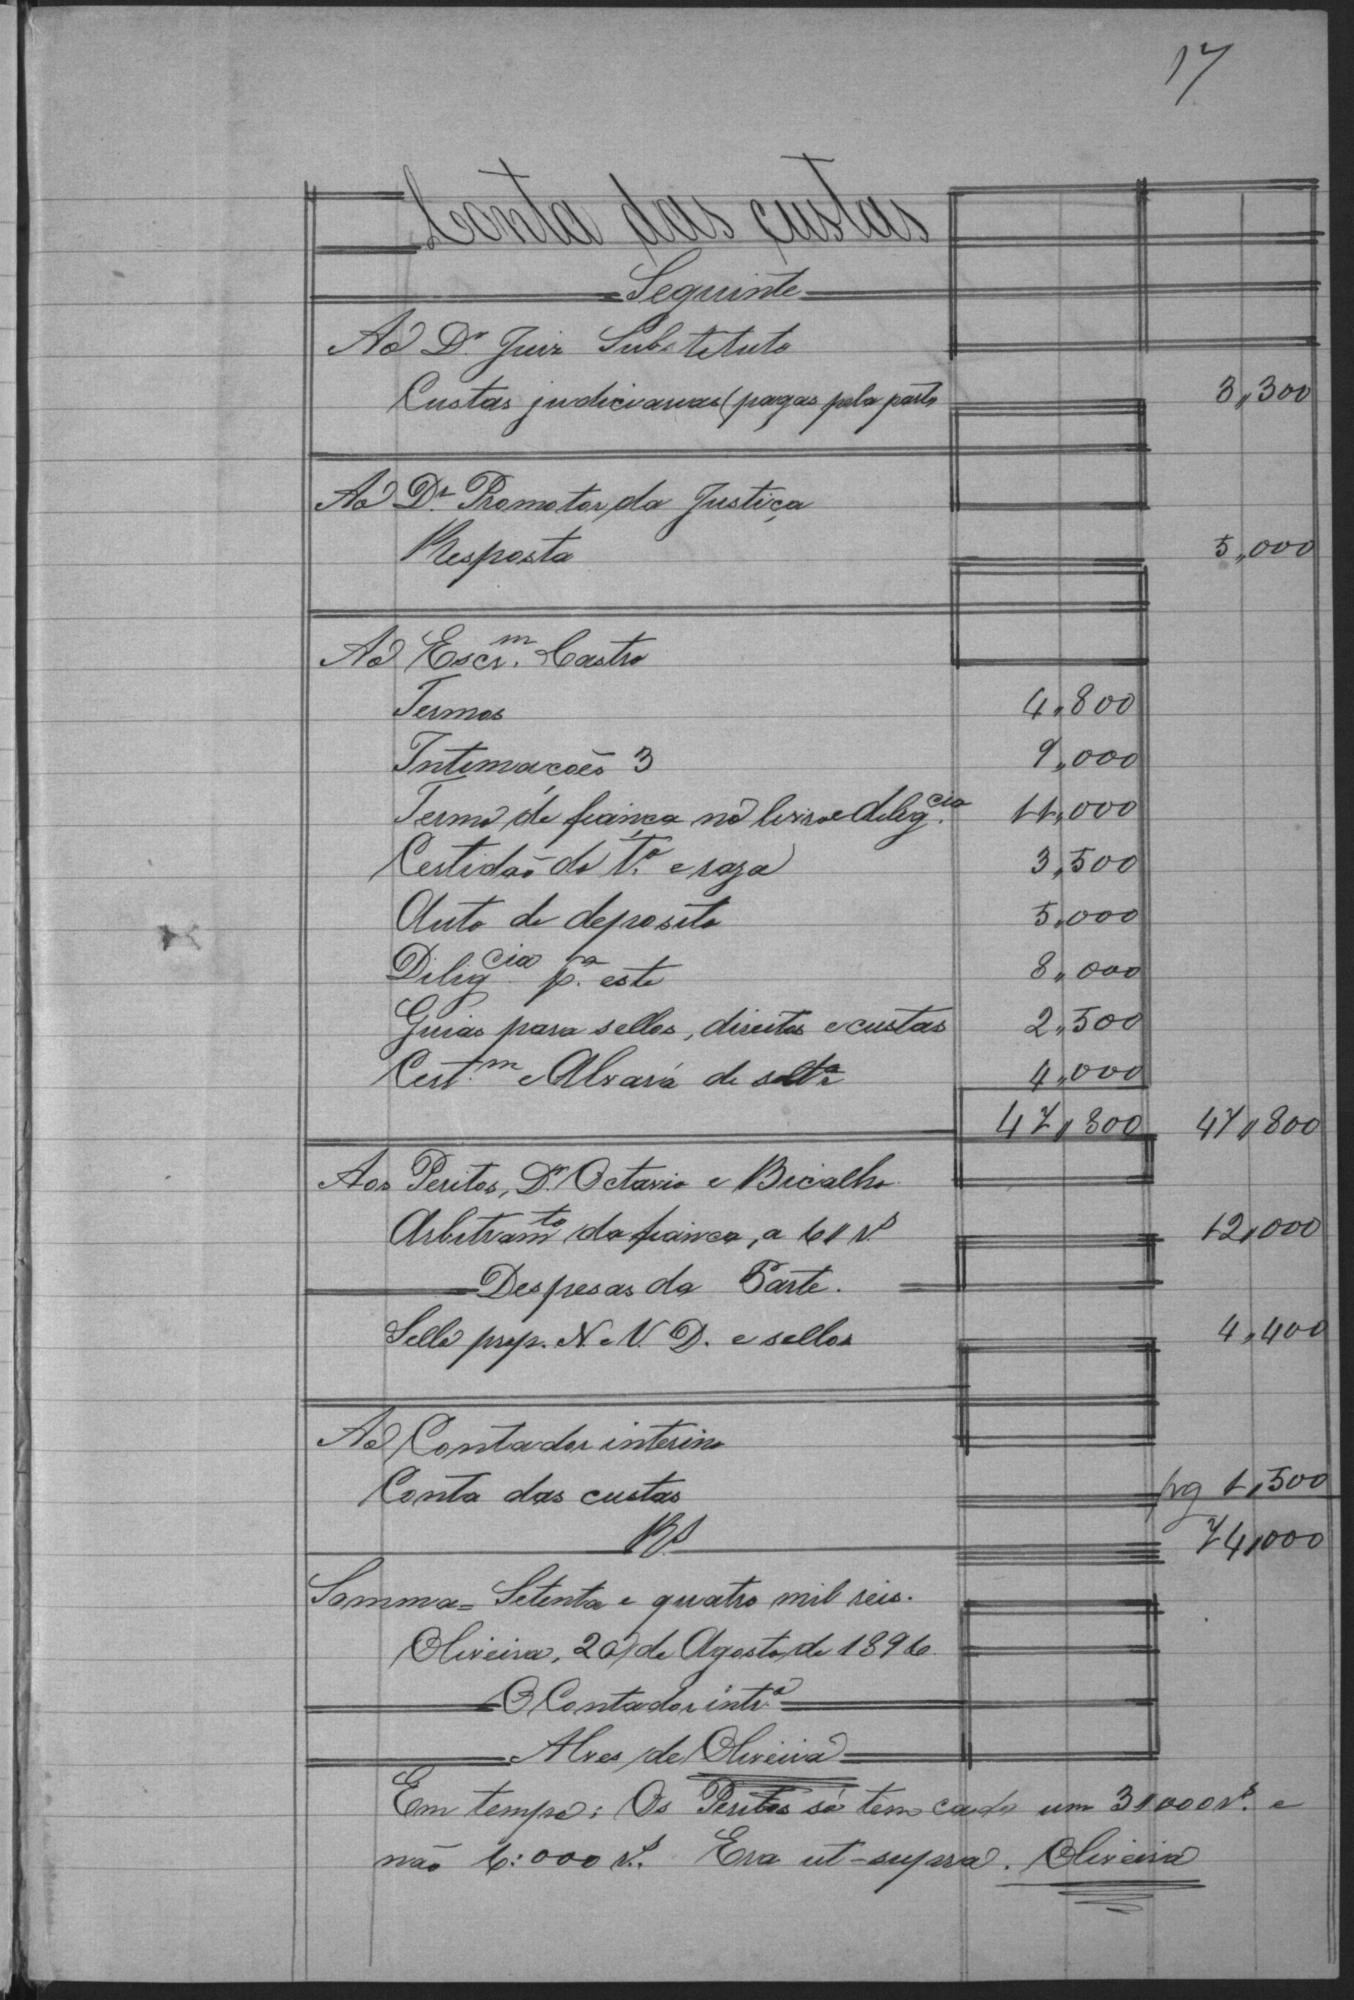 17
Conta das custas
Seguinte
Ao Dr. Juiz Substituto
Custas judiciarias (pagas pela parte 3,300
Ao Dr. Promotor da Justiça
Resposta 5,000
Ao Escr.m Castro
Termos 4,800
Intimações 3 9,000
Termo de fiança no livro e dilig.cia 11,000
Certidão do t.o e raza 3,500
Auto de deposito 5,000
Dilig.cia p.a este 8,000
Guias para sellos, direitos e custas 2,500
Cert.m e Alvará de solt.a 4,000
47,800 47,800
Aos Peritos, Dr. Octavio e Bicalho
Arbitram.to da fiança, a 6// rs. 12,000
Despesas da Parte.
Sello prop. N. e V. D. e sellos 4,400
Ao Contador interino
Conta das custas pg 1,500
Rs. 74,000
Somma = Setenta e quatro mil reis.
Oliveira, 20 de Agosto de 1896
O Contador intr.o
Alves de Oliveira
Em tempo: Os Peritos só tem cada um 3//000 rs. e
não 6:000 rs. Era ut-supra. Oliveira